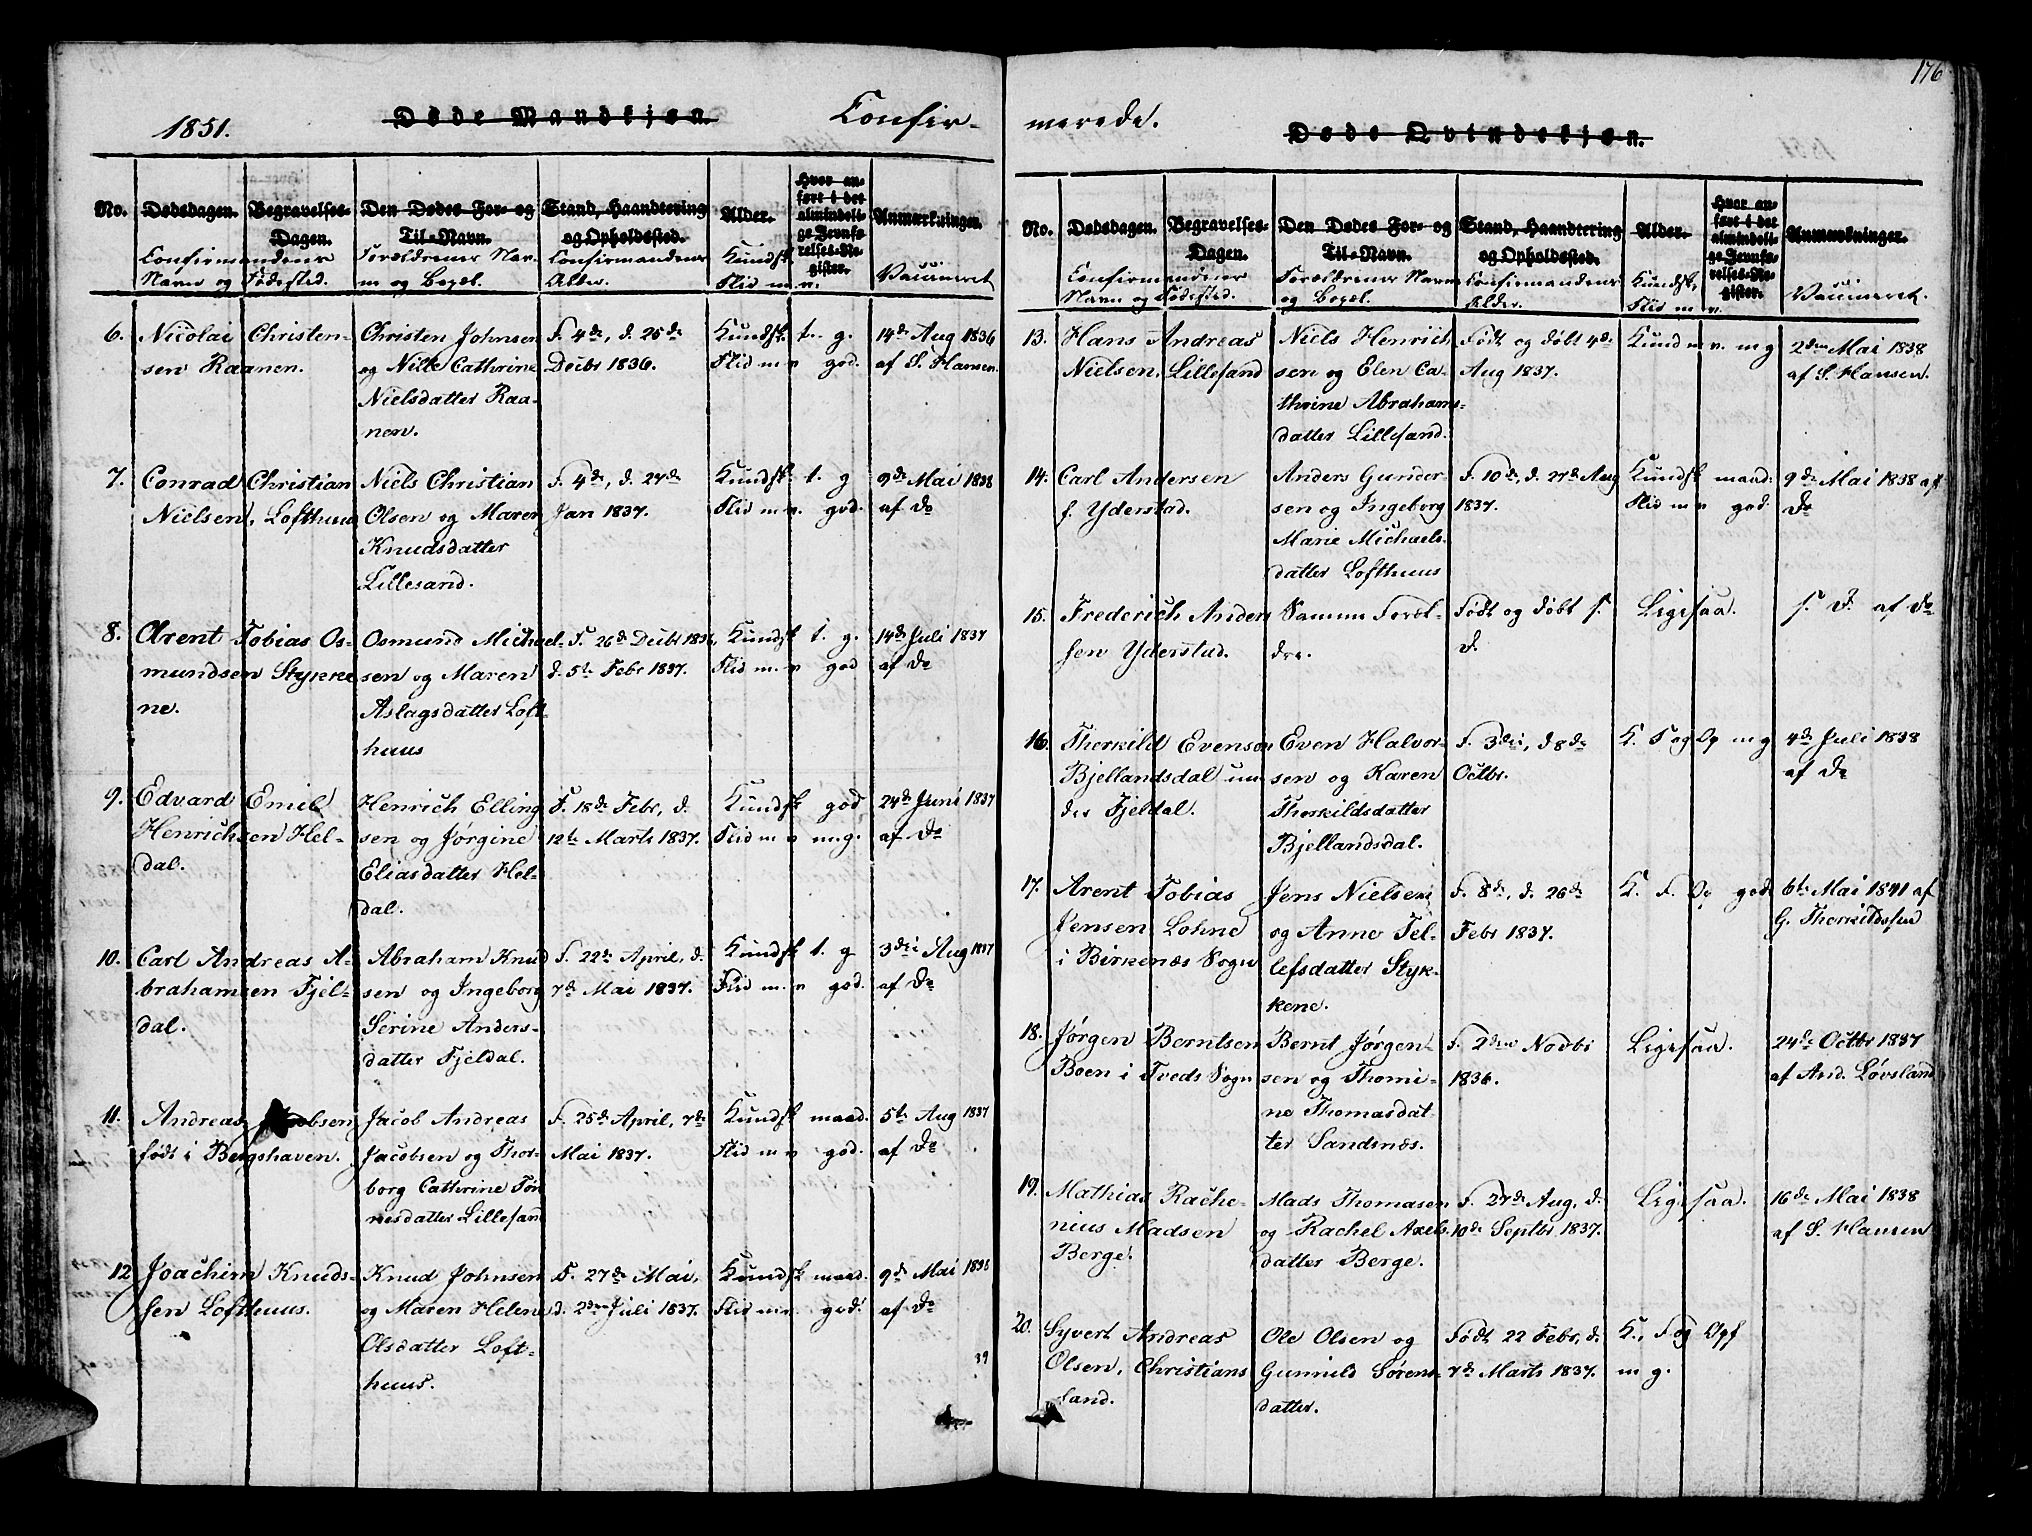 176
1851.
Døde Mandkjøn.
Confir-
merede.
Døde Qvindekjøn.
No.
Dødsdagen.
Begravelses-
Dagen.
Den Dødes For- og
Til-Navn.
Stand, Haandtering
og Opholdssted.
Alder.
Hvor an-
ført i det
almindeli-
ge Jevnfø-
relses-Re-
gister.
Anmærkninger.
Confirmandener
Navn og Fødested.
Forældrener Nav-
m og Bopæl.
Confirmandener
Alder.
Kundsk.
Flid m. v.
Vaccineret
6. Nicolai Christen-
sen Raanen.
Christen Johnsen
og Nille Cathrine
Nielsdatter Raa-
nen.
F. 4de, d. 26de
Decbr 1836.
Kundsk. t. g.
Flid m. v. god.
14de Aug 1836
af S. Hansen.
7. Conrad Christian
Nielsen, Lofthuus
Niels Christian
Olsen og Maren
Knudsdatter
Lillesand.
F. 4de, d. 24de
Jan 1837.
Kundsk. t. g
Flid m. v. god.
9de Mai 1838
af Do
8. Arent Tobias Os-
mundsen Stykke
ne.
Osmund Michael-
sen og Maren
Aslagsdatter Loft
huus
F. 26de Decbr 1836,
d. 5te Febr 1837.
Kundsk t. g.
Flid m. v god
14de Juli 1837
af Do
9. Edvard Emil
Henrichsen Hel-
dal.
Henrich Elling
sen og Jørgine
Eliasdatter Hel-
dal.
F. 18de Febr, d.
12te Marts 1837.
Kundsk god
Flid m. v m.g.
24de Juni 1837
af Do
10. Carl Andreas A-
brahamsen Fjel-
dal.
Abraham Knud
sen og Ingeborg
Serine Anders-
datter Fjeldal.
F. 22de April, d.
7de Mai 1837.
Kundsk t. g
Flid m. v god.
3die Aug 1837
af Do
11. Andreas Jacobsen
født i Bergshaven.
Jacob Andreas
Jacobsen og Thor-
borg Cathrine Tøn
nesdatter Lillesand
F. 25de April, 7de
Mai 1837.
Kundsk maad.
Flid m v god.
5te Aug 1837
af Do
12 Joachim Knuds-
sen Lofthuus.
Knud Johnsen
og Maren Helene
Olsdatter Loft-
huus.
F. 27de Mai,
d. 2den Juli 1837.
Kundsk maad.
Flid m. v. god.
9de Mai 1838
af Do
39
No.
Dødsdagen.
Begravelses-
Dagen.
Den Dødes For- og
Til-Navn.
Stand, Haandtering
og Opholdssted.
Alder.
Hvor an-
ført i det
almindeli-
ge Jevnfø-
relses-Re-
gister.
Anmærkninger.
Confirmandener
Navn og Fødested.
Forældrener Navn
og Bopæl.
Confirmandener
Alder.
Kundsk,
Flid m. v.
Vaccineret.
13. Hans Andreas
Nielsen, Lillesand
Niels Henrich
sen og Elen Ca-
thrine Abrahams-
datter Lillesand.
Født og døbt 4de
Aug 1837.
Kund m v. m g
2den Mai 1838
af S. Hansen.
14. Carl Andersen
f. Yderstad.
Anders Gunder-
sen og Ingeborg
Marie Michaels-
datter Lofthuus
F. 10de, d. 27de Aug
1837.
Kundsk maad:
Flid m v god.
9de Mai 1838 af
Do
15. Frederich Ander
sen Yderstad.
Samme Foræl-
dre.
Født og døbt s.
D.
Ligesaa.
s. D. af Do
16. Thorkild Evensen
Bjellandsdal un
der Fjeldal.
Even Halvor-
sen og Karen
Thorkildsdatter
Bjellandsdal.
F. 3die, d 8de
Octbr.
K. F og Op m g
4de Juli 1838
af Do
17. Arent Tobias
Jensen Lohne
i Birkenæs Sogn
Jens Nielsen
og Anne Tel-
lefsdatter Styk-
kene.
F. 8de, d. 26de
Febr 1837.
K. F. Op god
6te Mai 1841 af
G. Thorkildssen
18. Jørgen Berntsen
Boen i Tveds Sogn
Bernt Jørgen-
sen og Thomi-
ne Thomasdat-
ter Sandsnæs.
F. 2den Novbr
1836.
Ligesaa.
24de Octbr 1837
af And. Løvsland
19. Mathias Rache-
nius Madsen
Berge.
Mads Thomasen
og Rachel Axels-
datter Berge.
F. 27de Aug, d.
10de Septbr 1837.
Ligesaa.
16de Mai 1838
af S. Hansen
20. Syvert Andreas
Olsen, Christians
sand.
Ole Olsen og
Gunnild Sørens-
datter.
Født 22 Febr, d.
7de Marts 1837.
K., F og Opf
m g.